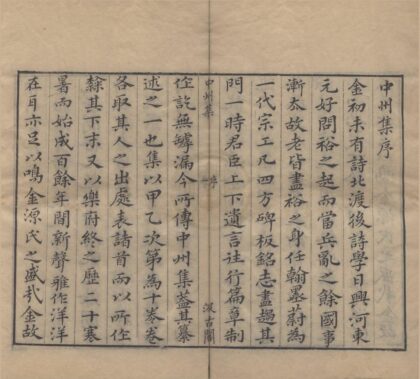 中州集序
金初未有詩北渡後詩學日興河東
元好問裕之起而當兵亂之餘國事
漸𣳾故老皆盡裕之身任翰墨蔚為
一代宗工凡四方碑板銘志盡趨其
門一時君臣上下遺言往行篇章制
中州集
序
汲古閣
作訖無罅漏今所傳中州集葢其纂
述之一也集以甲乙次第為十卷卷
各取其人之出處表諸首而以所作
隸其下末又以樂府終之歷二十寒
暑而始成百餘年間新聲雅作洋洋
在耳亦足以鳴金源氏之盛㢤金故